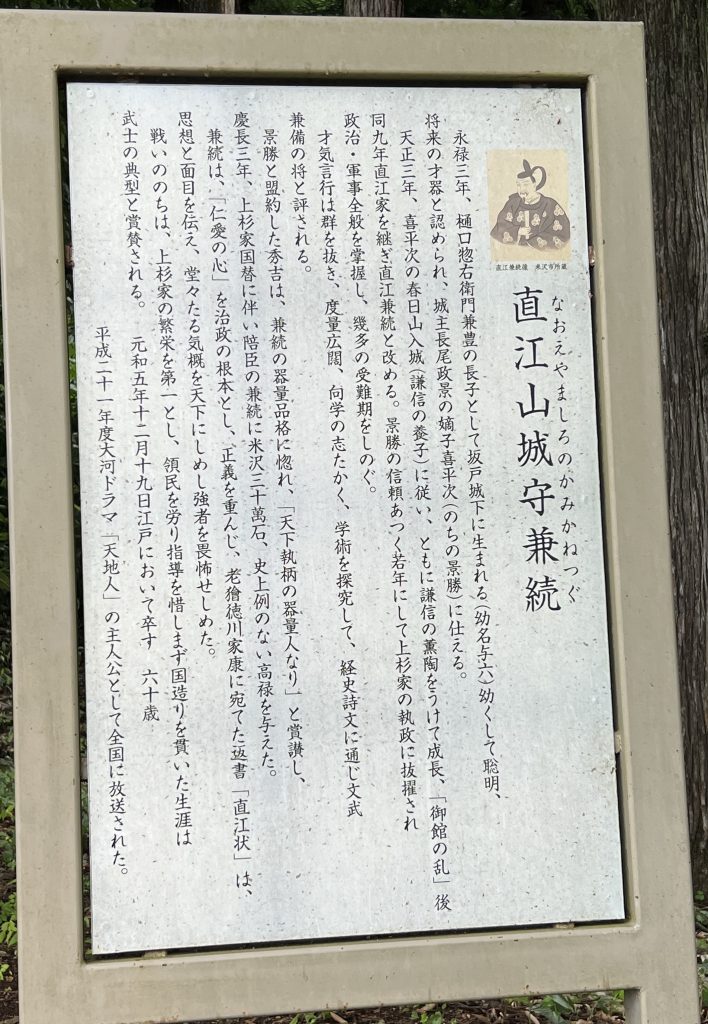 直江兼続像 米沢市所蔵
なおえやましろのかみかねつぐ
直江山城守兼続
永禄三年、樋口惣右衛門兼豊の長子として坂戸城下に生まれる(幼名与六)幼くして聡明、
将来の才器と認められ、城主長尾政景の嫡子喜平次(のちの景勝)に仕える。
天正三年、喜平次の春日山入城(謙信の養子)に従い、ともに謙信の薫陶をうけて成長、「御館の乱」後
同九年直江家を継ぎ直江兼続と改める。景勝の信頼あつく若年にして上杉家の執政に抜擢され
政治・軍事全般を掌握し、幾多の受難期をしのぐ。
才気言行は群を抜き、度量広闊、向学の志たかく、学術を探究して、経史詩文に通じ文武
兼備の将と評される。
景勝と盟約した秀吉は、兼続の器量品格に惚れ、「天下執柄の器量人なり」と賞讃し、
慶長三年、上杉家国替に伴い陪臣の兼続に米沢三十萬石、史上例のない高禄を与えた。
兼続は、「仁愛の心」を治政の根本とし、正義を重んじ、老獪徳川家康に宛てた返書「直江状」は、
思想と面目を伝え、堂々たる気概を天下にしめし強者を畏怖せしめた。
戦いののちは、上杉家の繁栄を第一とし、領民を労り指導を惜しまず国造りを貫いた生涯は
武士の典型と賞賛される。 元和五年十二月十九日江戸において卒す 六十歳
平成二十一年度大河ドラマ「天地人」の主人公として全国に放送された。